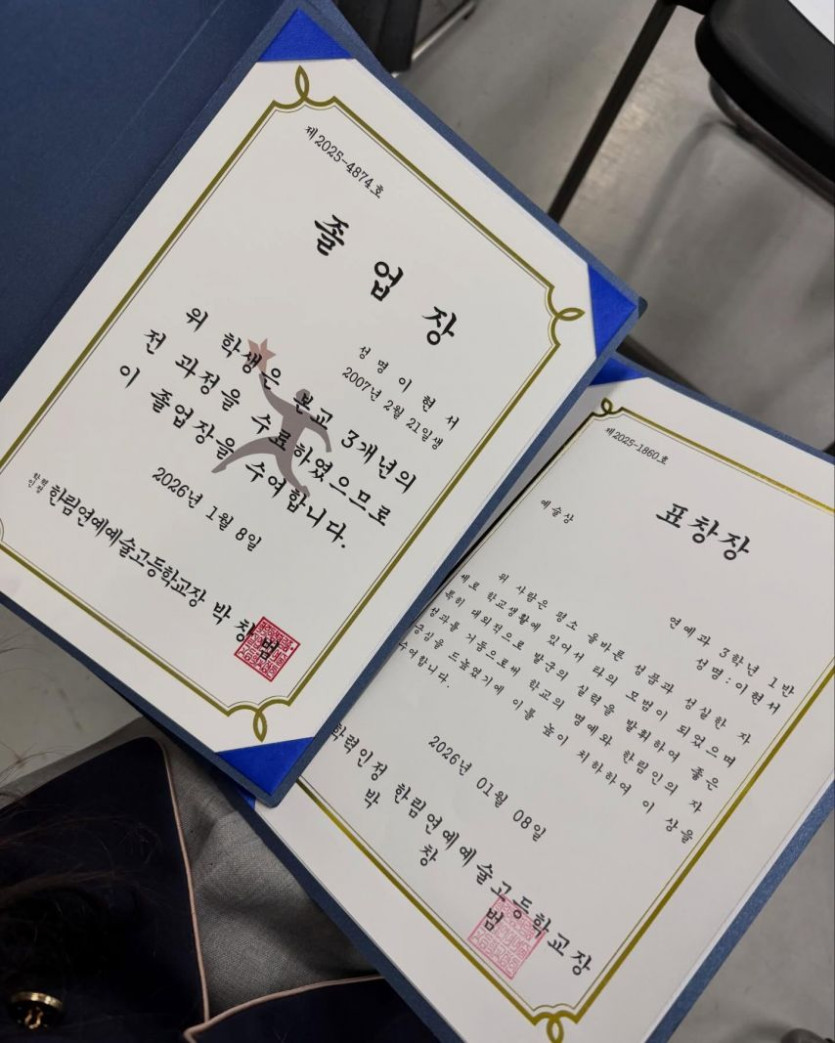 제2025-4874호
졸업장
성명 이현서
2007년 2월 21일생
위 학생은 본교 3개년의
전 과정을 수료하였으므로
이 졸업장을 수여합니다.
2026년 1월 8일
학력
인정 한림연예예술고등학교장 박창범
제2025-1860호
표창장
예술상
연예과 3학년 1반
성명 : 이현서
위 사람은 평소 올바른 성품과 성실한 자
세로 학교생활에 있어서 타의 모범이 되었으며
특히 대외적으로 발군의 실력을 발휘하여 좋은
성과를 거둠으로써 학교의 명예와 한림인의 자
긍심을 드높였기에 이를 높이 치하하여 이 상을
수여합니다.
2026년 01월 08일
학력인정 한림연예예술고등학교장
박 창 범